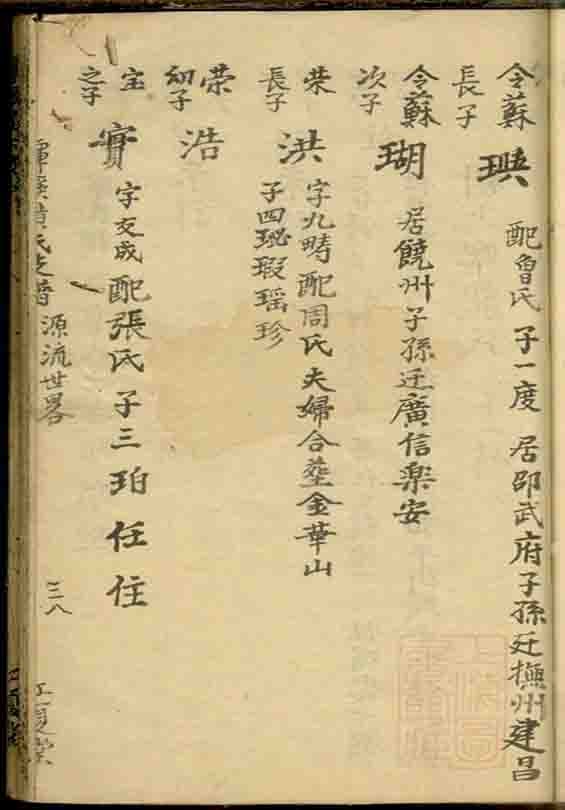 令蘇
長子
珙 配魯氏 子一度 居邵武府子孫迁撫州建昌
令蘇
次子
瑚 居饒州子孫迁廣信樂安
荣
長子
洪 字九疇配周氏夫婦合塟金華山
子四珌瑕瑶珍
荣
幼子
浩
宝
之子
實 字友成 配張氏子三珀任住
氏支譜 源流世畧 三八